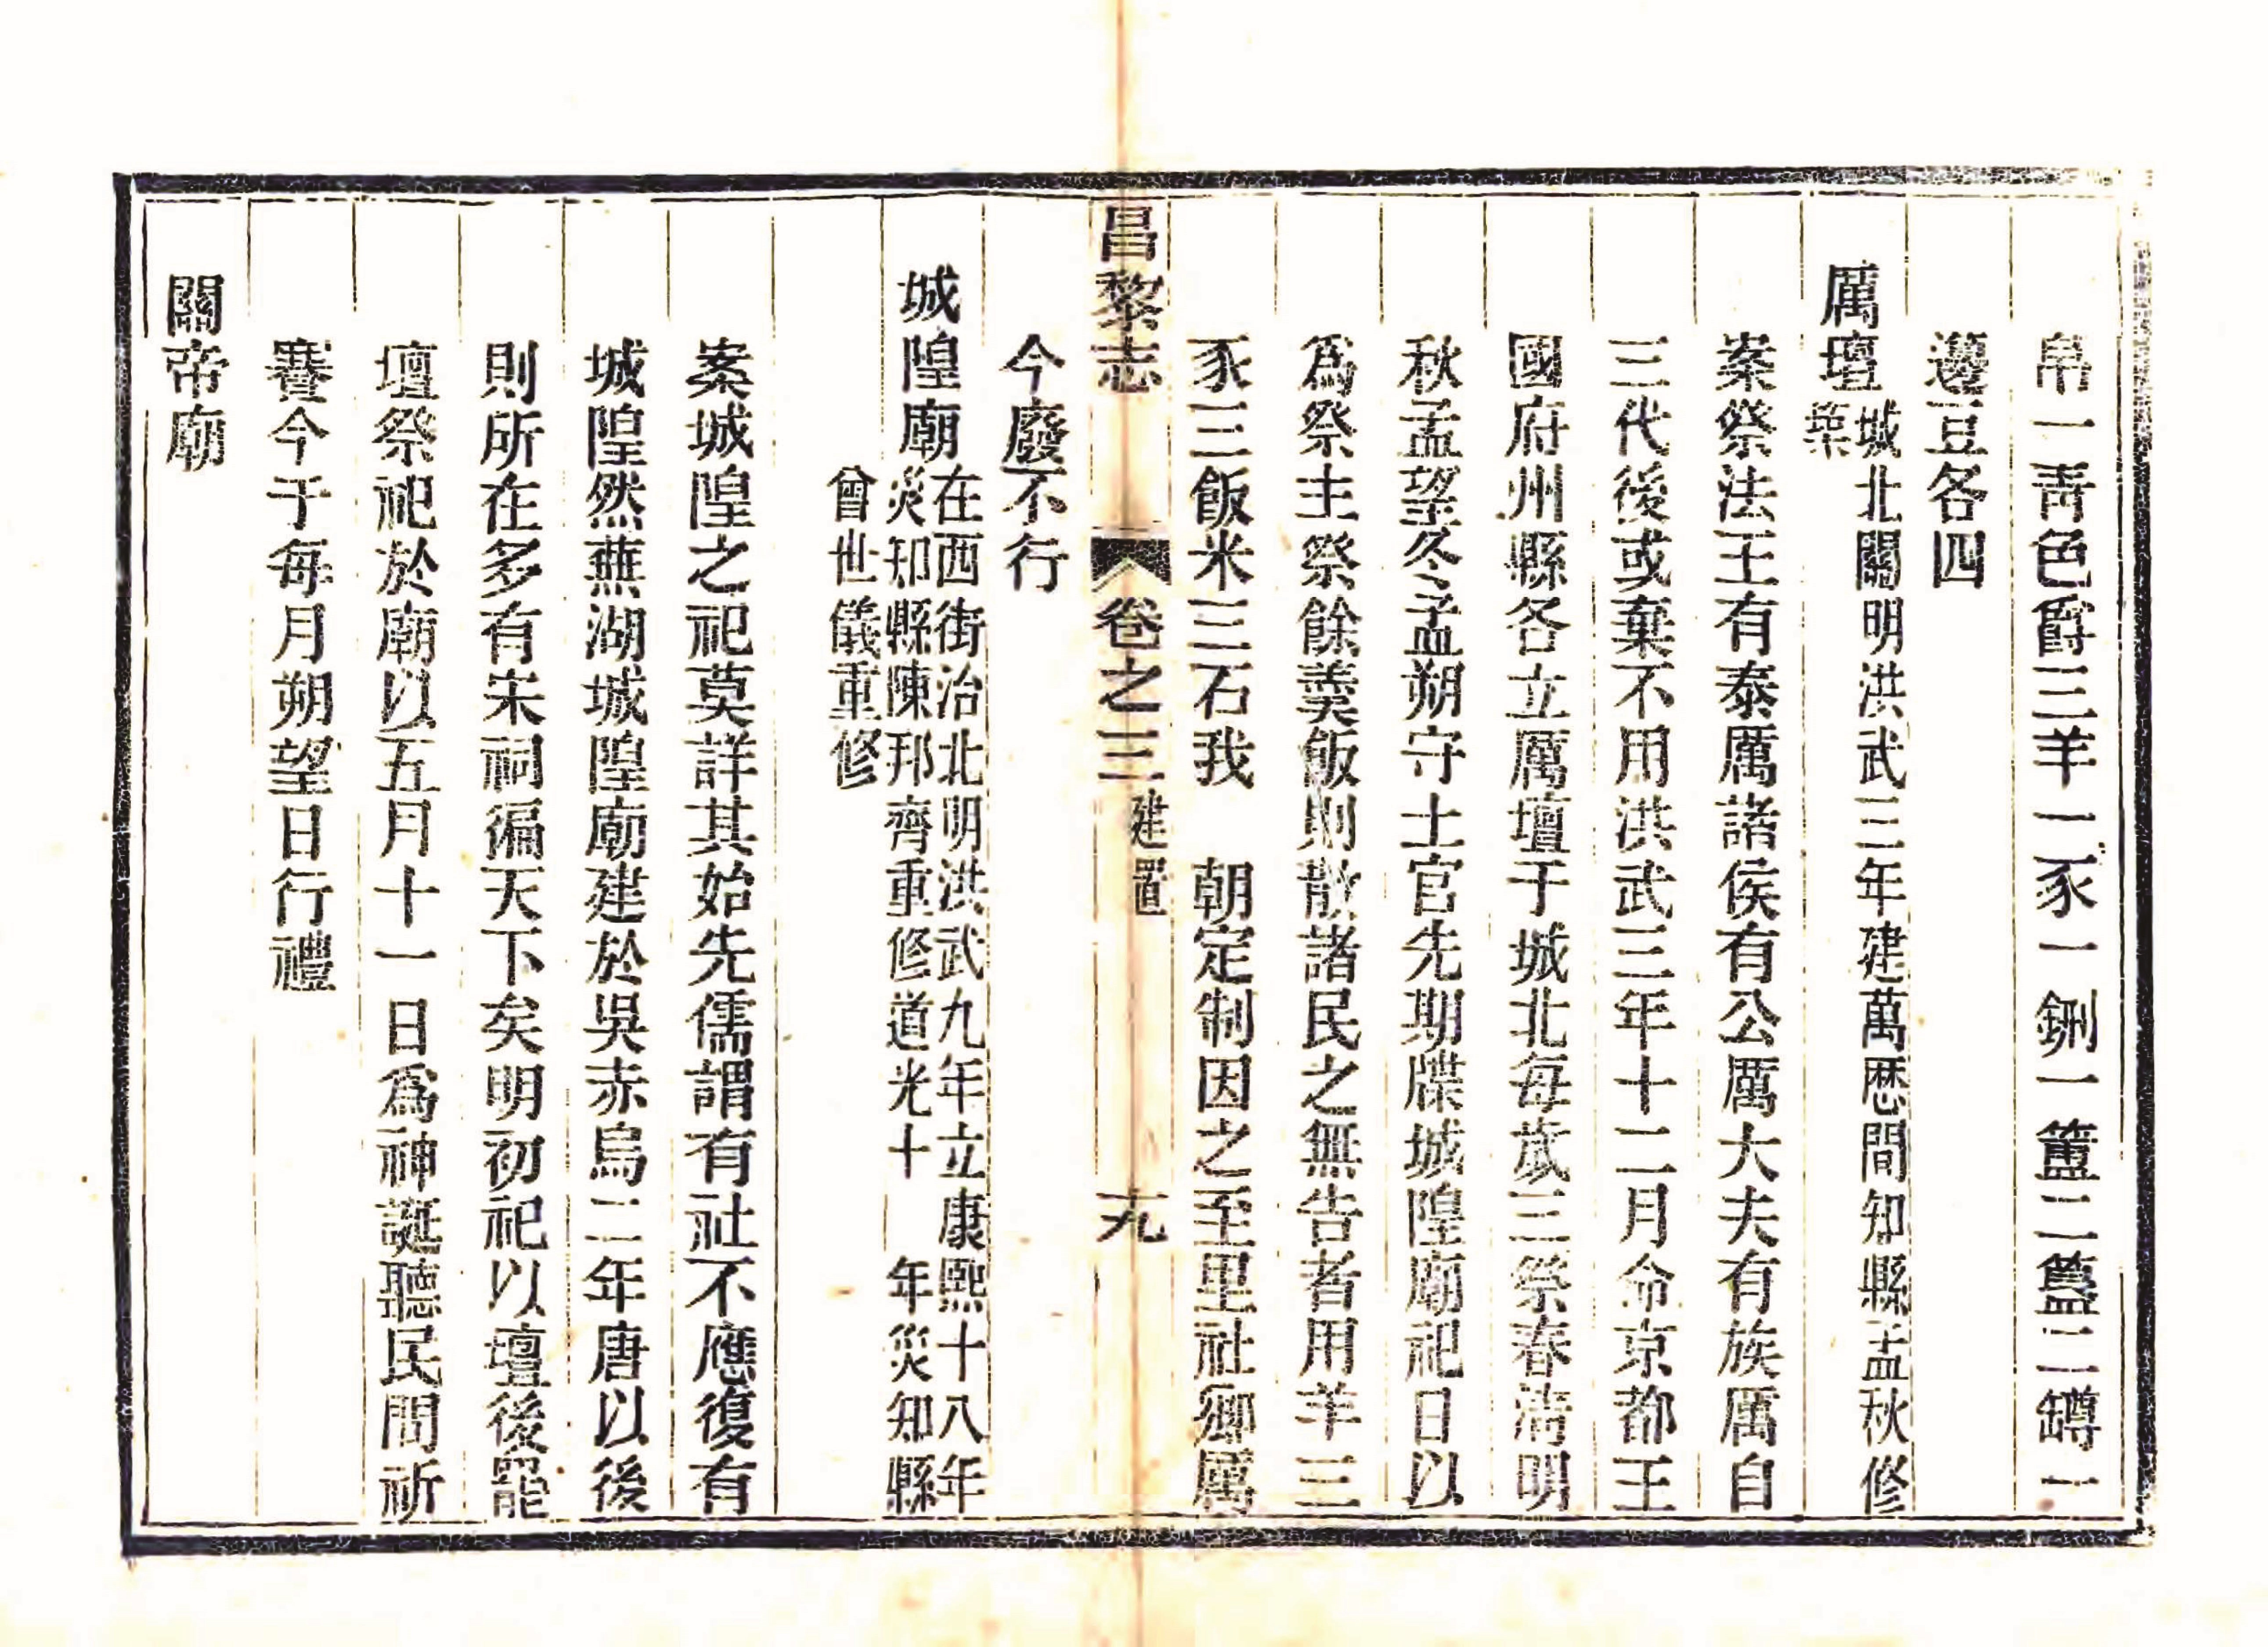 帛一青色爵三羊一豕一鉶一簠二簋二罇一
籩豆各四
厲壇城北關明洪武三年建萬歷間知縣孟秋修
築
案祭法王有泰厲諸侯有公厲大夫有族厲自
三代後或棄不用洪武三年十二月命京都王
國府州縣各立厲壇于城北每歲三祭春清明
秋孟望冬孟朔守土官先期牒城隍廟祀日以
爲祭主祭餘羮飯則散諸民之無告者用羊三
豕三飯米三石我　朝定制因之至里社鄉厲
今廢不行
昌黎志　卷之三建置　十九
城隍廟在西街治北明洪武九年立康熙十八年
災知縣陳邦齊重修道光十　年災知縣
曾世儀重修
案城隍之祀莫詳其始先儒謂有社不應復有
城隍然蕪湖城隍廟建於吳赤烏二年唐以後
則所在多有宋祠徧天下矣明初祀以壇後罷
壇祭祀於廟以五月十一日爲神誕聽民間祈
賽今于每月朔望日行禮
關帝廟